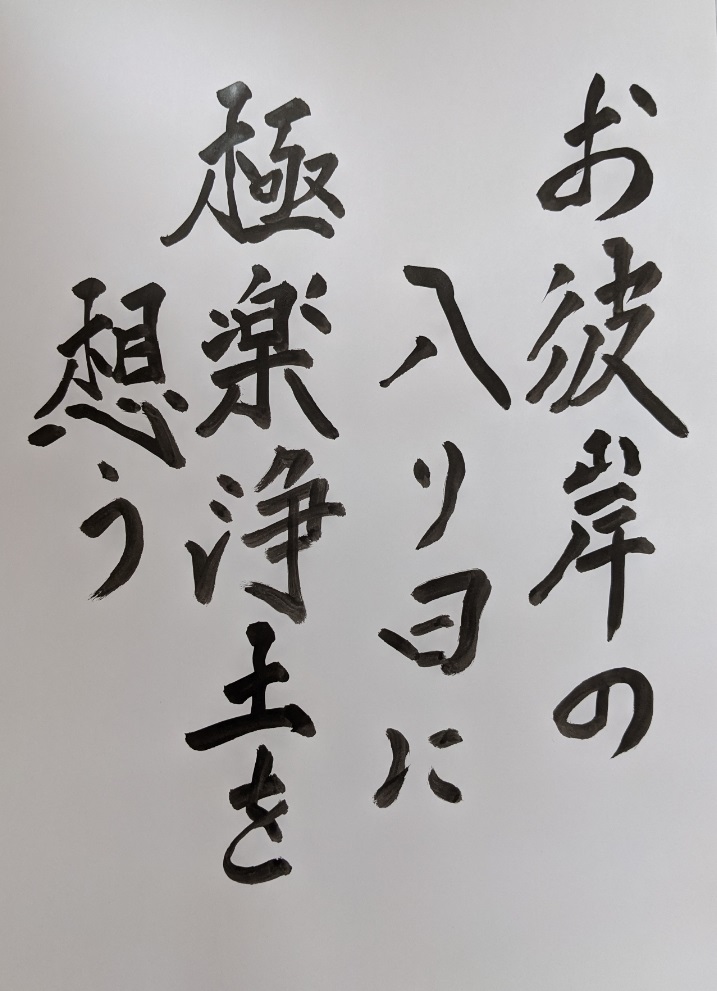 お彼岸の
入り日に
極楽浄土を
想う